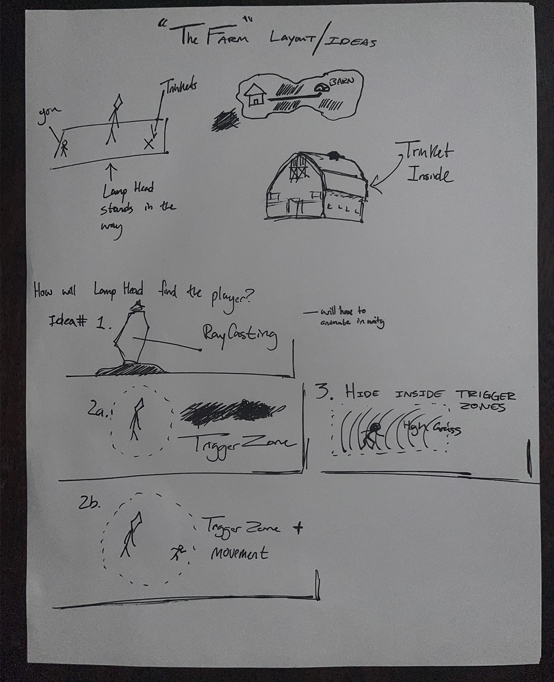 "The Farm" Layout/Ideas
Trinkets
you
BARN
Lamp Head
stands in the
way
Trinket
Inside
How will Lamp Head find the player?
Idea# 1.
Ray Casting
— will have to
animate in unity
2a.
Trigger Zone
3. HIDE INSIDE TRIGGER
ZONES
High Grass
2b.
Trigger Zone +
movement